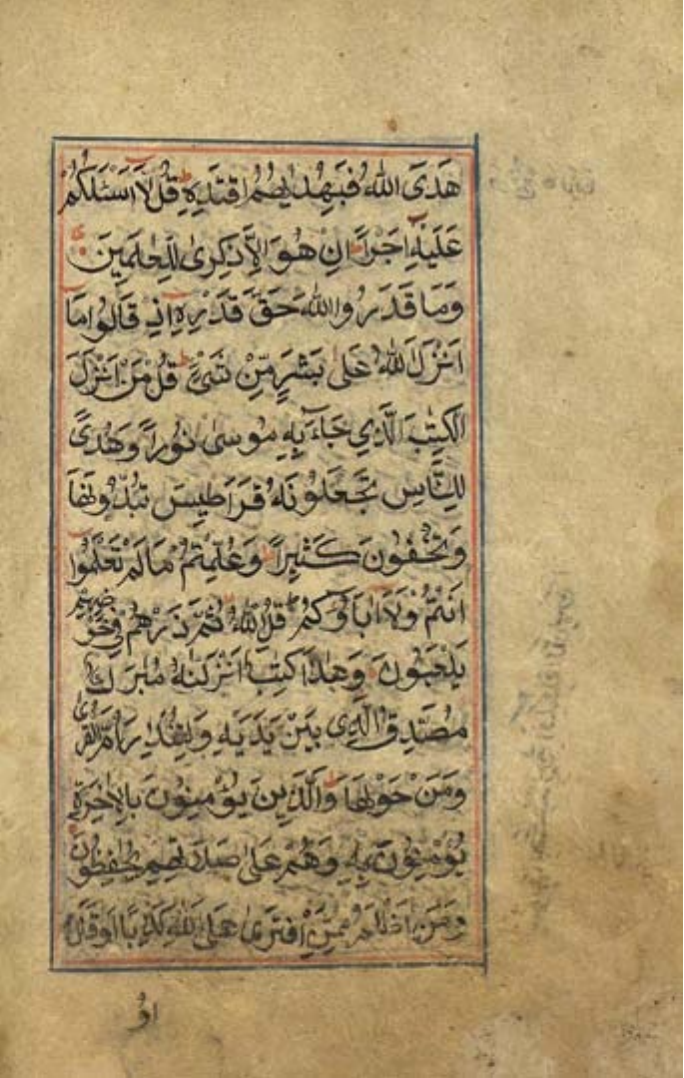 هَدَى اللهُ فَبِهُدٰىهُمُ اقْتَدِهْ قُلْ لَا اَسْئَلُكُمْ
عَلَيْهِ اَجْرًا اِنْ هُوَ اِلَّا ذِكْرٰى لِلْعٰلَمِينَ
وَمَا قَدَرُوا اللهَ حَقَّ قَدْرِهِ اِذْ قَالُوا مَا
اَنْزَلَ اللهُ عَلٰى بَشَرٍ مِّنْ شَىْءٍ قُلْ مَنْ اَنْزَلَ
الْكِتٰبَ الَّذِي جَاءَ بِهِ مُوسٰى نُورًا وَهُدًى
لِلنَّاسِ تَجْعَلُونَهُ قَرَاطِيسَ تُبْدُونَهَا
وَتُخْفُونَ كَثِيرًا وَعُلِّمْتُمْ مَا لَمْ تَعْلَمُوا
اَنْتُمْ وَلَا اٰبَاؤُكُمْ قُلِ اللهُ ثُمَّ ذَرْهُمْ فِي خَوْضِهِمْ
يَلْعَبُونَ وَهٰذَا كِتٰبٌ اَنْزَلْنٰهُ مُبٰرَكٌ
مُصَدِّقُ الَّذِى بَيْنَ يَدَيْهِ وَلِتُنْذِرَ اُمَّ الْقُرٰى
وَمَنْ حَوْلَهَا وَالَّذِينَ يُؤْمِنُونَ بِالْاٰخِرَةِ
يُؤْمِنُونَ بِهِ وَهُمْ عَلٰى صَلَاتِهِمْ يُحٰفِظُونَ
وَمَنْ اَظْلَمُ مِمَّنِ افْتَرٰى عَلَى اللهِ كَذِبًا اَوْ قَالَ
اَوْ